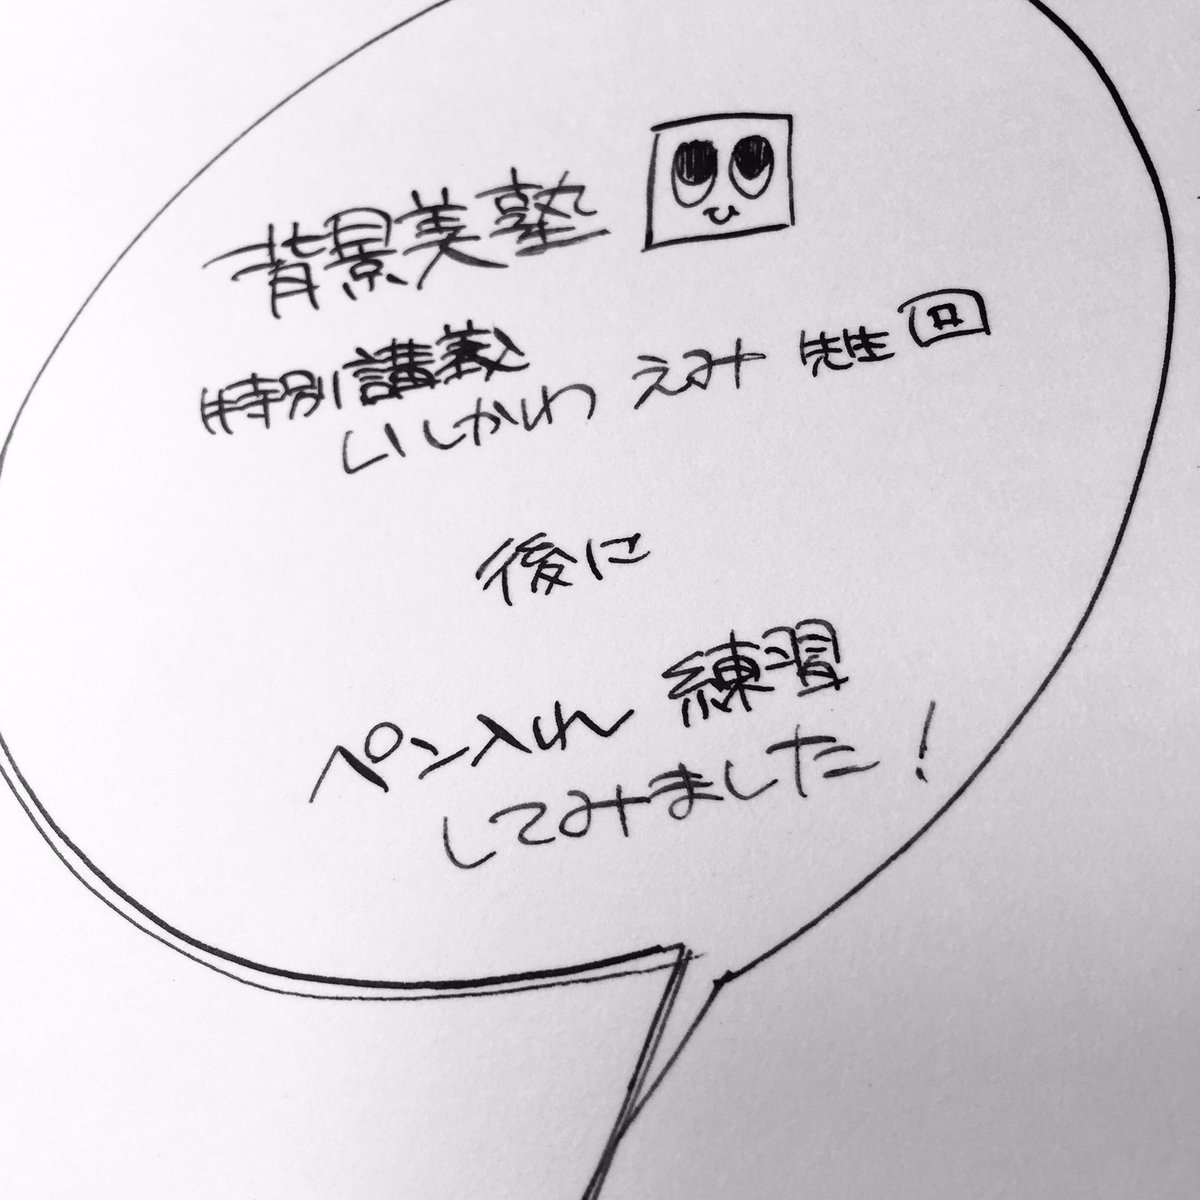 背景美塾
特別講義
いしかわ えみ 先生回
後に
ペン入れ 練習
してみました!